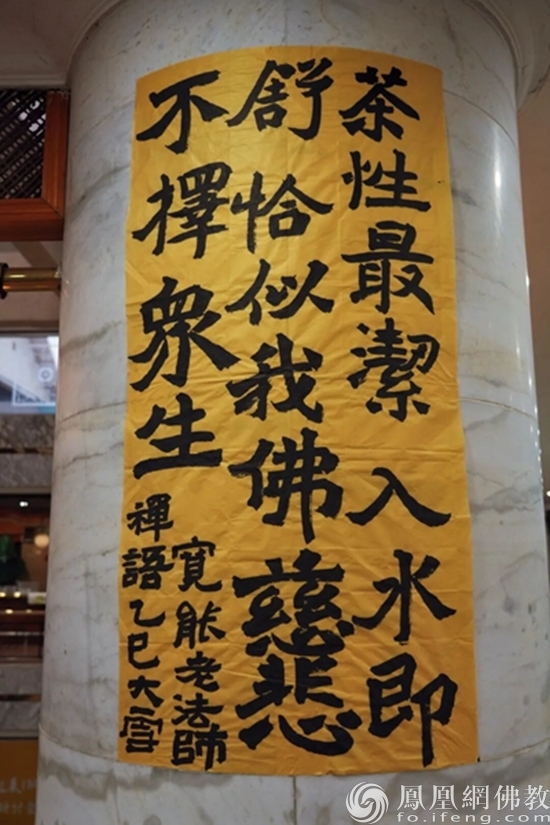 茶性最潔 入水即
舒 恰似我佛慈悲
不擇眾生
寬能老法師
禪語乙巳大雪
鳳凰網佛教
fo.ifeng.com